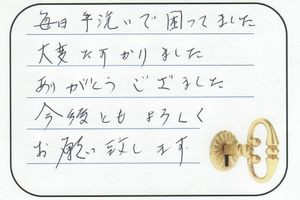 毎日手洗いで困ってました
大変たすかりました
ありがとうござました
今後ともよろしく
お願い致します